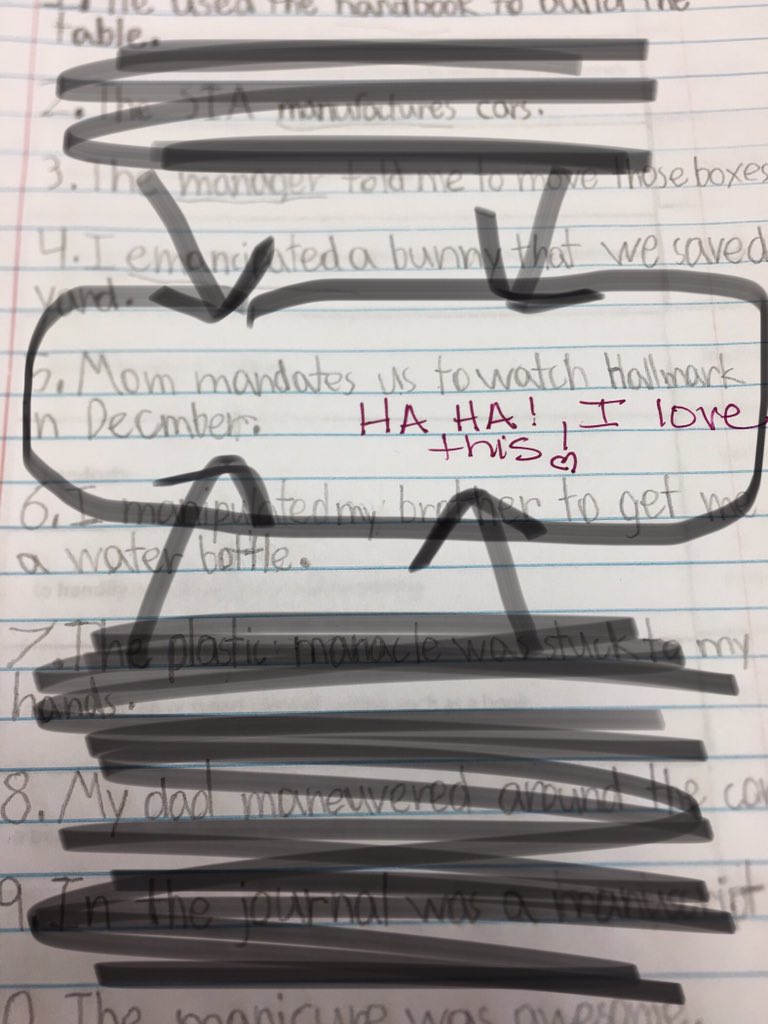 1. He used the handbook to build the
table.
2. The STA manufactures cars.
3. The manager told me to move those boxes
4. I emancipated a bunny that we saved
yard.
5. Mom mandates us to watch Hallmark
in Decmber. HA HA! I love
this!
6. I manipulated my brother to get me
a water bottle.
7. The plastic manacle was stuck to my
hands.
8. My dad maneuvered around the
9. In the journal was a manuscript
0. The manicure was awesome.